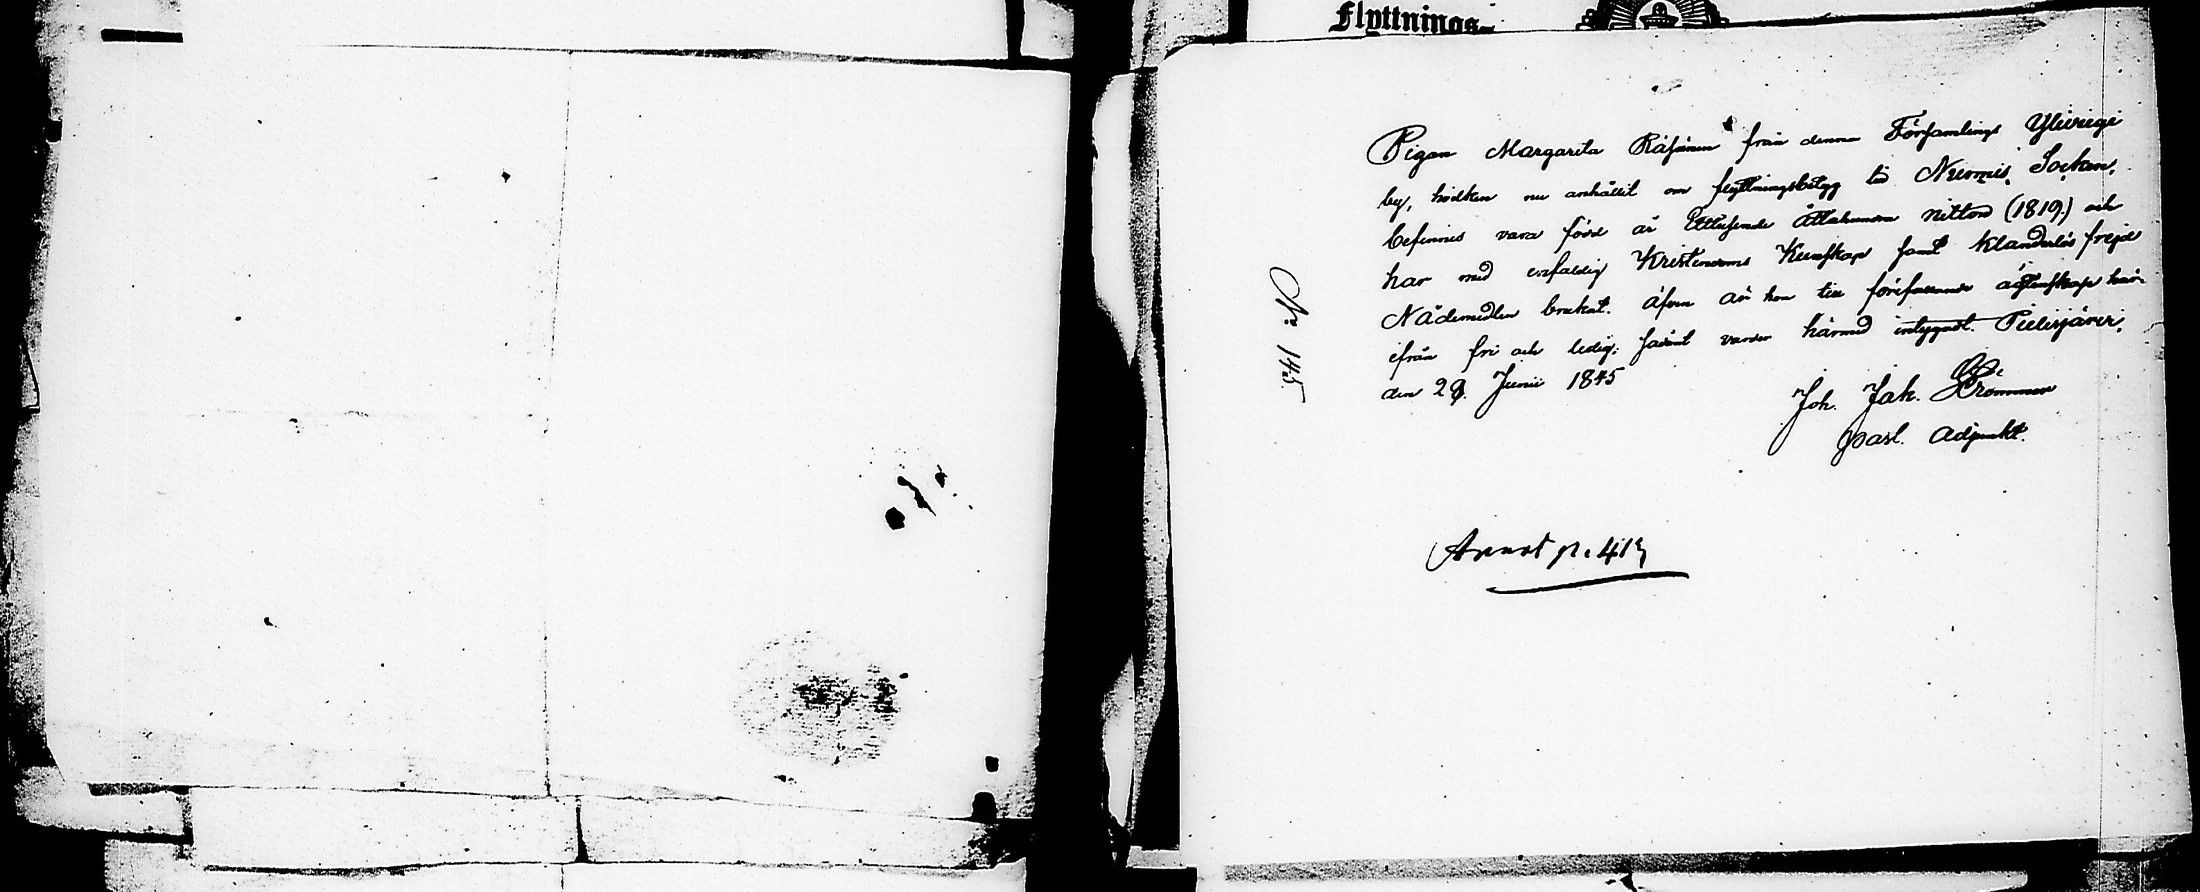 Flyttnings-
Pigan Margareta Räsänen från denna Församlings Yliviexi
by, hvilken nu anhållit om flyttningsbetyg till Nurmis Socken,
befinnes vara född år Ettusende åttahundra nitton (1819) och
har med enfaldig Kristendoms Kunskap samt klanderlös frejd
Nådemedlen brukat. äfven är hon till äktenskap här-
ifrån fri och ledig; varder härmed intygadt. Pielisjärvi,
den 29. Junii 1845
Joh. Jak.
past. Adjunkt.
N: 145
Annot p. 419